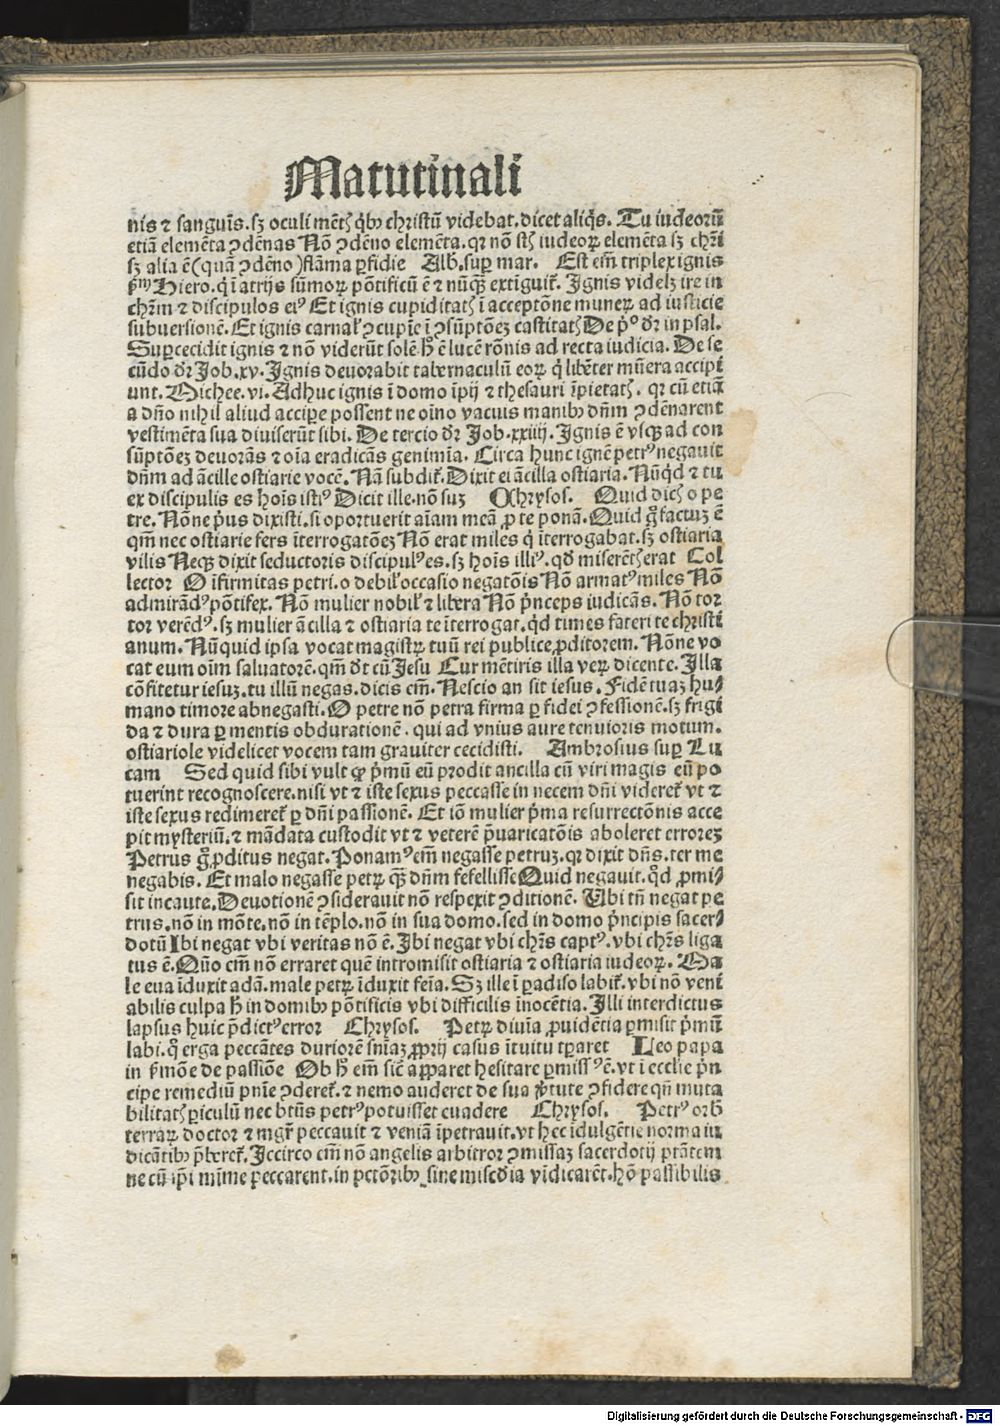 Matutinali
nis ⁊ sanguīs. sꝫ oculi mētꝭ qͥbꝰ christū videbat. dicet aliqͥs. Tu iudeorū
etiā elemēta ꝯdēnas Nō ꝯdēno elemēta. qꝛ nō st̄ iudeoꝝ elemēta sꝫ chr̄i
sꝫ alia ē (quā ꝯdēno) flāma ꝑfidie Alb̄. suꝑ mar. Est em̄ triplex ignis
Hiero. q̇ ī atrijs sūmoꝝ pōtificū ē ⁊ nūqꝫ extīguit᷑. Ignis videlꝫ ire in
chr̄m ⁊ discipulos eiꝰ Et ignis cupiditatꝭ ī acceptōne muneꝝ ad iusticie
subuersionē. Et ignis carnał ꝯcupīe ī ꝯsūptōeꝫ castitatꝭ De pͦ dr̄ in psal.
Suꝑcecidit ignis ⁊ nō viderūt solē. h̄ ē lucē rōnis ad recta iudicia. De se
cūdo dr̄ Job. xv. Ignis deuorabit tabernaculū eoꝝ q̇ libēter mūera accipi
unt. Michee. vi. Adhuc ignis ī domo īpij ⁊ thesauri īpietatꝭ. qꝛ cū etiā
a dn̄o nihil aliud acciꝑe possent ne oīno vacuis manibꝰ dn̄m ꝯdēnarent
vestimēta sua diuiserūt sibi. De tercio dr̄ Job. xxiiij. Ignis ē vsqꝫ ad con
sūptōeꝫ deuorās ⁊ oīa eradicās genimīa. Circa hunc ignē petrꝰ negauit
dn̄m ad ācille ostiarie vocē. Nā subdit᷑. Dixit ei ācilla ostiaria. Nūqͥd ⁊ tu
ex discipulis es hoīs istiꝰ Dicit ille. nō suꝫ Chrysos. Quid dicꝭ o pe
tre. Nōne pͥus dixisti. si oportuerit aīam meā ꝓ te ponā. Quid g̊ factuꝫ ē
qm̄ nec ostiarie fers īterrogatōeꝫ Nō erat miles q̇ īterrogabat. sꝫ ostiaria
vilis Neqꝫ dixit seductoris discipulꝰ es. sꝫ hoīs illiꝰ. qd̄ miserētꝭ erat Col
lector O īfirmitas petri. o debił occasio negatōis Nō armatꝰ miles Nō
admirādꝰ pōtifex. Nō mulier nobił ⁊ libera Nō pͥnceps iudicās. Nō tor
tor verēdꝰ. sꝫ mulier ācilla ⁊ ostiaria te īterrogat. qͥd times fateri te christi
anum. Nūquid ipsa vocat magistꝝ tuū rei publice ꝓditorem. Nōne vo
cat eum oīm saluatorē. qm̄ dt̄ cū Jesu Cur mētiris illa veꝝ dicente. Illa
cōfitetur iesuꝫ. tu illū negas. dicis em̄. Nescio an sit iesus. Fidē tuaꝫ hu⸗
mano timore abnegasti. O petre nō petra firma ꝑ fidei ꝯfessionē. sꝫ frigi
da ⁊ dura ꝑ mentis obdurationē. qui ad vnius aure tenuioris motum.
ostiariole videlicet vocem tam grauiter cecidisti. Ambrosius suꝑ Lu
cam Sed quid sibi vult ꝙ pͥmū eū prodit ancilla cū viri magis eū po
tuerint recognoscere. nisi vt ⁊ iste sexus peccasse in necem dn̄i videret᷑ vt ⁊
iste sexus redimeret᷑ ꝑ dn̄i passionē. Et iō mulier pͥma resurrectōnis acce
pit mysteriū. ⁊ mādata custodit vt ⁊ veterē p̄uaricatōis aboleret erroreꝫ
Petrus g̊ ꝓditus negat. Ponamꝰ em̄ negasse petruꝫ. qꝛ dixit dn̄s. ter me
negabis. Et malo negasse petꝝ qꝫ̄ dn̄m fefellisse Quid negauit. qͥd ꝓmi⸗
sit incaute. Deuotionē ꝯsiderauit nō respexit ꝯditionē. Ubi tn̄ negat pe
trus. nō in mōte. nō in tēplo. nō in sua domo. sed in domo pͥncipis sacer⸗
dotū Ibi negat vbi veritas nō ē. Ibi negat vbi chr̄s captꝰ. vbi chr̄s liga
tus ē. Quō em̄ nō erraret quē intromisit ostiaria ⁊ ostiaria iudeoꝝ. Ma
le eua īduxit adā. male petꝝ īduxit feīa. Sꝫ ille ī ꝑadiso labit᷑. vbi nō veni
abilis culpa h̄ in domibꝰ pōtificis vbi difficilis inocētia. Illi interdictus
lapsus huic p̄dictꝰ error Chrysos. Petꝝ diuīa ꝓuidētia ꝑmisit pͥmū
labi. q̊ erga peccātes duriorē sn̄iaꝫ ꝓprij casus ītuitu tꝑaret Leo papa
in ẜmōe de passiōe Ob h̄ em̄ sic̄ apparet hesitare ꝑmissꝰ ē. vt ī ecclie pͥn
cipe remediū pn̄ie ꝯderet᷑. ⁊ nemo auderet de sua v̓tute ꝯfidere qn̄ muta
bilitatꝭ ꝑiculū nec bt̄us petrꝰ potuisset euadere Chrysos. Petrꝰ orb̄
terraꝝ doctor ⁊ mgr̄ peccauit ⁊ veniā īpetrauit. vt hec īdulgētie norma iu
dicātibꝰ p̄beret᷑. Iccirco em̄ nō angelis arbitror ꝯmissaꝫ sacerdotij ptātem
ne cū ip̄i mīme peccarent. in pctōribꝰ sine mīscd̄ia vīdicarēt. hō passibilis
Digitalisierung gefördert durch die Deutsche Forschungsgemeinschaft - DFG